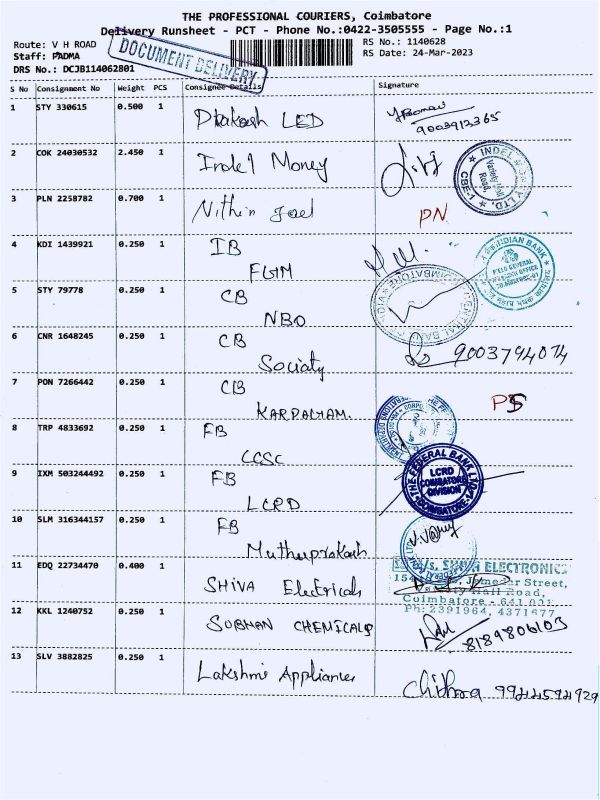 THE PROFESSIONAL COURIERS, Coimbatore
Delivery Runsheet - PCT - Phone No.:0422-3505555 - Page No.:1
Route: V H ROAD
RS No.: 1140628
Staff: PADMA
RS Date: 24-Mar-2023
DRS No.: DCJB114062801
DOCUMENT DELIVERY
S No Consignment No Weight PCS Consignee Details Signature
1 STY 330615 0.500 1 Prakash LED
9003912365
2 COK 24030532 2.450 1 Indel Money
INDEL MONEY LTD. CBE-1
Variety Hall Road,
3 PLN 2258782 0.700 1 Nithin Joel PN
4 KDI 1439921 0.250 1 IB
FGM
INDIAN BANK
FIELD GENERAL
5 STY 79778 0.250 1 CB
NBO
COIMBATORE
CENTRAL BANK
6 CNR 1648245 0.250 1 CB
Sociaty 9003794074
7 PON 7266442 0.250 1 CB
KARPAGAM. PS
8 TRP 4833692 0.250 1 FB
LCSC
9 IXM 503244492 0.250 1 FB
LCRD
THE FEDERAL BANK LTD.
LCRD
COIMBATORE
DIVISION
COIMBATORE
10 SLM 316344157 0.250 1 FB
Muthuprakash
11 EDQ 22734470 0.400 1 SHIVA Electricals
M/s. SHIVA ELECTRONICS
Jameder Street,
Variety Hall Road,
Coimbatore - 641 001
Ph: 2391964, 4371677
12 KKL 1240752 0.250 1 SUBHAN CHEMICALS
8189806103
13 SLV 3882825 0.250 1 Lakshmi Appliances
Chithra 9944594929